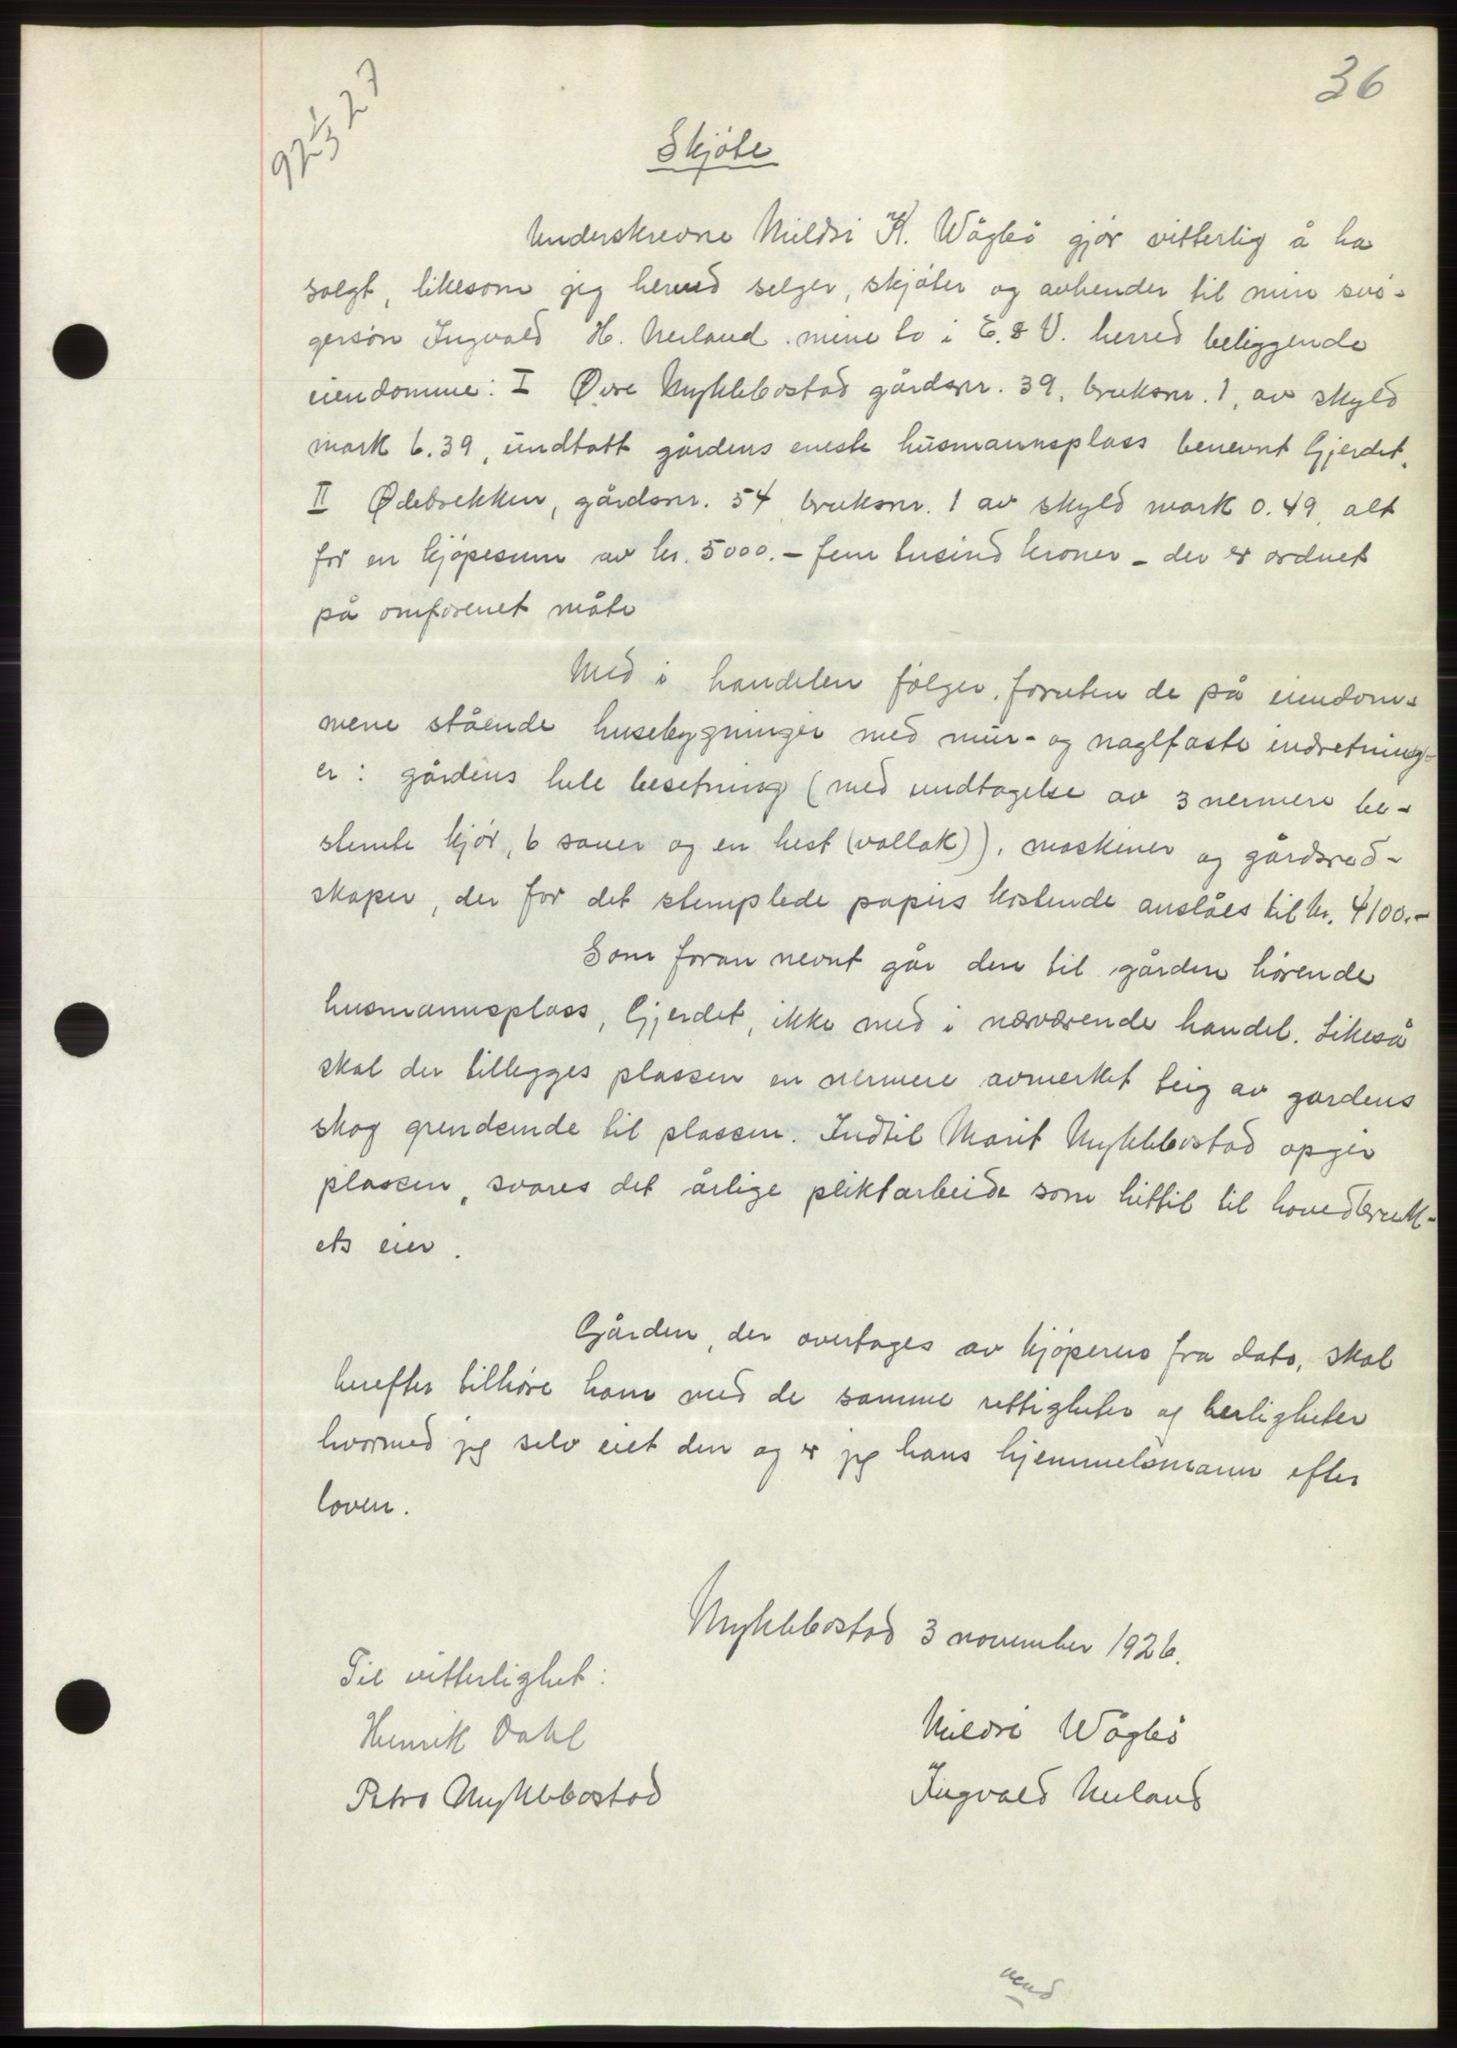 36
92 1/3 27
Skjøte
Underskrevne Mildri K. Wågbø gjør vitterlig å ha
solgt, likesom jeg herved selger, skjøter og avhender til min svi-
gersøn Ingvald H. Neiland mine to i E. & V. herred beliggende
eiendomme: I Øvre Myklebostad gårdsnr. 39, bruksnr. 1, av skyld
mark 6.39, undtatt gårdens eneste husmannsplass benevnt Gjerdet,
II Ødebrekken, gårdsnr. 54, bruksnr. 1 av skyld mark 0.49, alt
for en kjøpesum av kr. 5000.- fem tusind kroner - der er ordnet
på omforenet måte
Med i handelen følger, foruten de på eiendom-
mene stående husebygninger med mur- og naglfaste indretning-
er: gårdens hele besetning (med undtagelse av 3 nermere be-
stemte kjør, 6 sauer og en hest (vallak)), maskiner og gårdsred-
skaper, der for det stemplede papirs kostende anslåes til kr. 4100.-
Som foran nevnt går den til gården hørende
husmannsplass, Gjerdet, ikke med i nærværende handel. Likeså
skal der tillegges plassen en nermere avmerket teig av gardens
skog grendsende til plassen. Indtil Marit Myklebostad opgir
plassen, svares det årlige pliktarbeide som hittil til hovedbruk-
ets eier.
Gården, der overtages av kjøperen fra dato, skal
herefter tilhøre ham med de samme rettigheter og herligheter
hvormed jeg selv eiet den og er jeg hans hjemmelsmann efter
loven.
Myklebostad 3 november 1926.
Til vitterlighet:
Henrik Dahl
Mildri Wågbø
Petra Myklebostad
Ingvald Neiland
vend